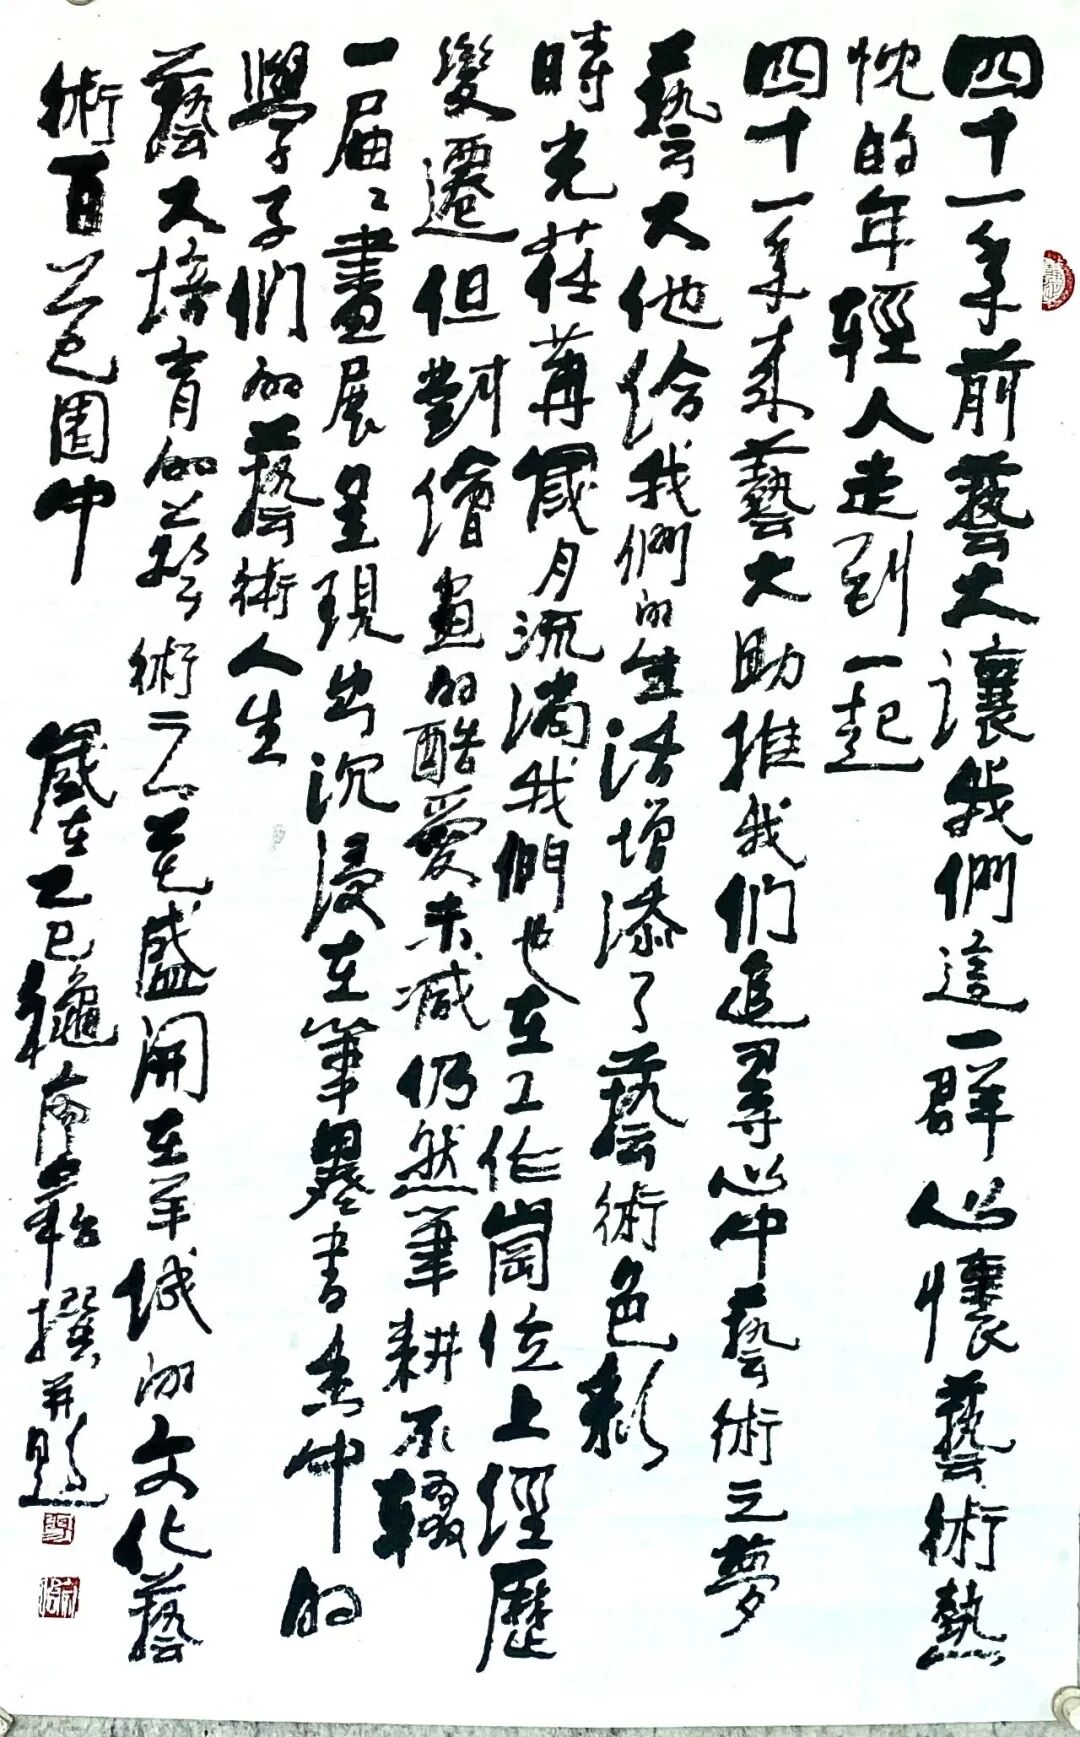 四十一年前藝大讓我們這一群人心懷藝術熱
忱的年輕人走到一起
四十一年來藝大助推我们追尋心中藝術之夢
藝大他给我們的生活增添了藝術色彩
時光荏苒歲月流淌我們也在工作崗位上經歷
變遷但對繪畫的酷愛未减仍然筆耕不輟
一届々畫展呈現出沉浸在筆墨書香中的
學子们的藝術人生
藝大培育的藝術之花盛開在羊城的文化藝
術百花園中
歲在乙巳撰并題